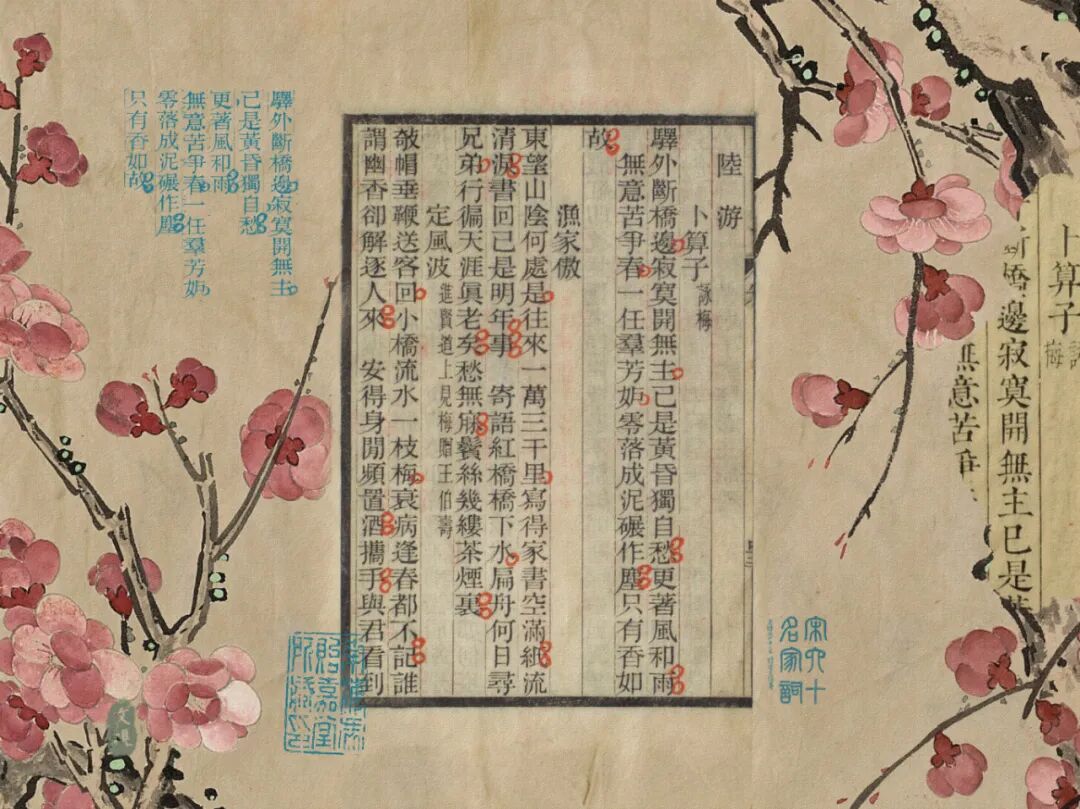 卜算子
梅
橋邊寂寞開無主已是
無意苦爭
陸游
卜算子 詠梅
驛外斷橋邊寂寞開無主已是黃昏獨自愁更著風和雨
無意苦爭春一任羣芳妒零落成泥碾作塵只有香如
故
漁家傲
東望山陰何處是往來一萬三千里寫得家書空滿紙流
清淚書回已是明年事 寄語紅橋橋下水扁舟何日尋
兄弟行徧天涯眞老矣愁無寐鬢絲幾縷茶煙裏
定風波 進賢道上見梅贈王伯壽
敧帽垂鞭送客回小橋流水一枝梅衰病逢春都不記誰
謂幽香卻解逐人來 安得身閒頻置酒攜手與君看到
驛外斷橋邊寂寞開無主
已是黃昏獨自愁
更著風和雨
無意苦爭春一任羣芳妒
零落成泥碾作塵
只有香如故
宋六十
名家詞